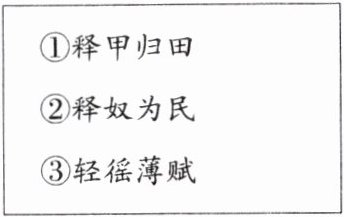 ①释甲归田
②释奴为民
③轻徭薄赋